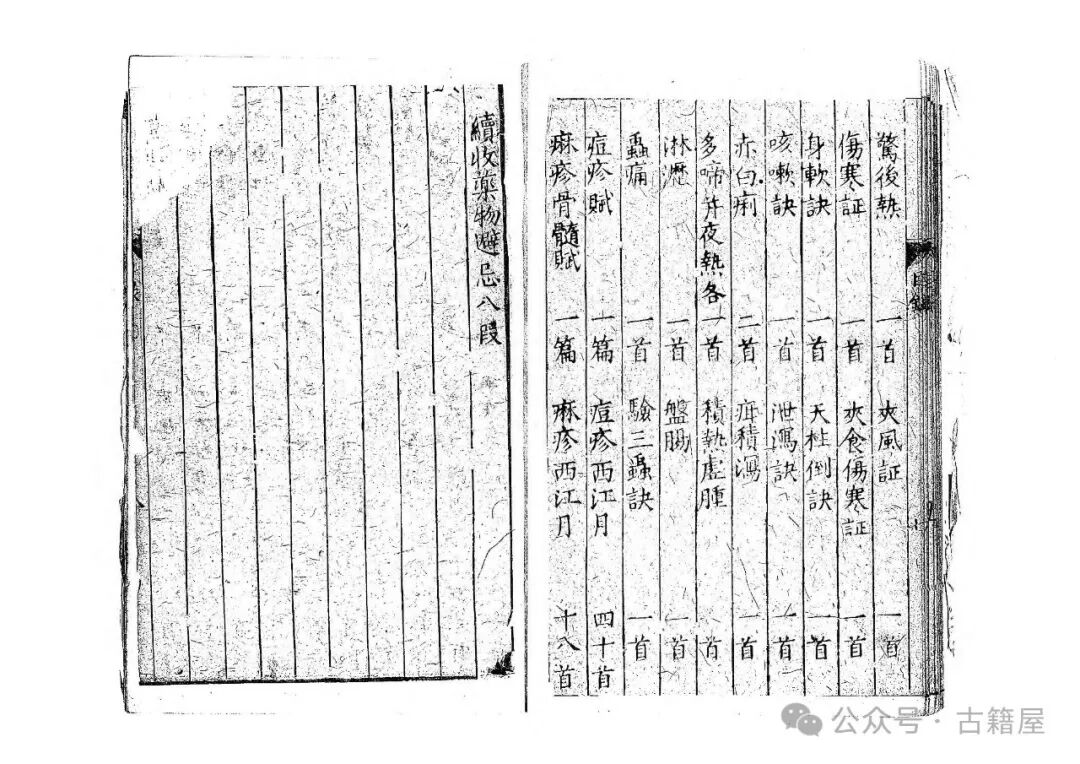 驚後熱 一首 夾風証 一首
傷寒証 一首 夾食傷寒証 一首
身軟訣 一首 天柱倒訣 一首
咳嗽訣 一首 泄瀉訣 一首
赤白痢 二首 疳積瀉 一首
多啼并夜熱各一首 積熱虛腫 一首
淋瀝 一首 盤腸 一首
蟲痛 一首 驗三蟲訣 一首
痘疹賦 一篇 痘疹西江月 四十首
麻疹骨髓賦 一篇 麻疹西江月 十八首
目錄
續收藥物避忌八段
公众号·古籍屋